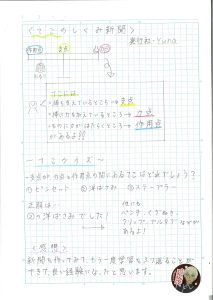 <てこのしくみ新聞>
発行社・Yuna
作用点 支点 力点
てこには
・棒を支えているところ→支点
・棒に力を加えているところ→力点
・ものに力がはたらくところ→作用点
があるよ!!
〜ミニクイズ〜
・支点が力点と作用点の間にあるてこはどれでしょう?
①ピンセット ②洋はさみ ③ステープラー
正解は…
②の洋はさみでした!
他にも
ペンチ、くぎぬき、
などが
あるよ!
<感想>
新聞を作ってみて、もう一度学習をふり返ることが
できて、良い経験になったと思います。